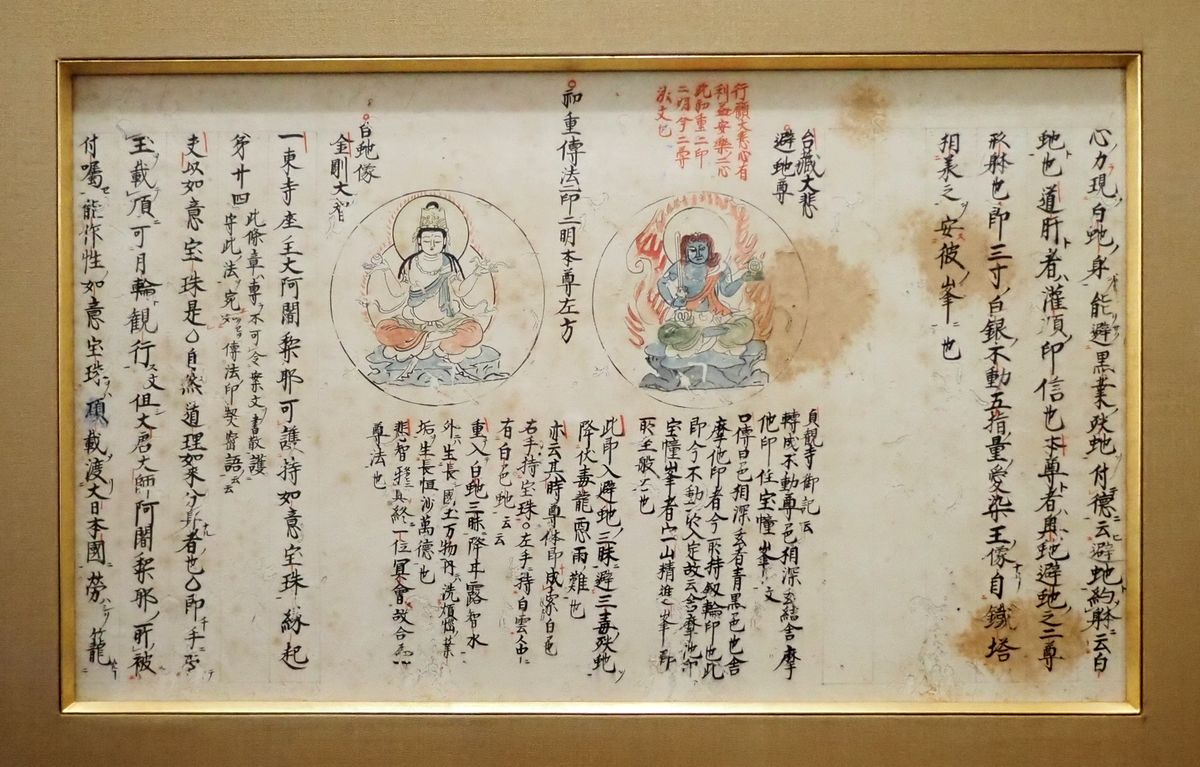 心力現白虵身能避黒業跂虵付德云避虵約躰云白
虵也道肝者灌頂印信也本尊者與虵避虵之三尊
形躰也即三寸白銀不動五指量愛染王像自鐵塔
相承之安彼峯也
台蔵大悲
避虵尊
行願大悲心有
利益安樂之心
此初重二印
二明今二尊
貞觀寺御記云
轉成不動尊色相深玄結舎摩
他印住宝幢峯文
口傳曰色相深玄者青黒色也舎
摩他印者今所持釼輪印也此
即今不動一入定故云舎摩他印
宝幢峯者宀一山精進峯即
此印入避虵三昧避三毒跂虵
降伏毒龍雨難也
亦云其時尊体印成家白色
右手持宝珠左手持白雲
有白色虵云云
重入白虵三昧降甘露智水
外生長國王万物内洗煩惱業
垢生長恒沙萬德也
悲智形真終一位冥會故合
尊法也
初重傳法一印二明本尊左方
白虵像
金剛大
一東寺座主大阿闍梨耶可護持如意宝珠緣起
第廿四
此條章專不可令案文書散護
守此法宛如傳法印契密語云云
夫以如意宝珠是自然道理如来分身者也
玉載頂可月輪觀行文但大唐大師阿闍梨耶所被
付囑能作性如意宝珠頂載渡大日本國勞籠